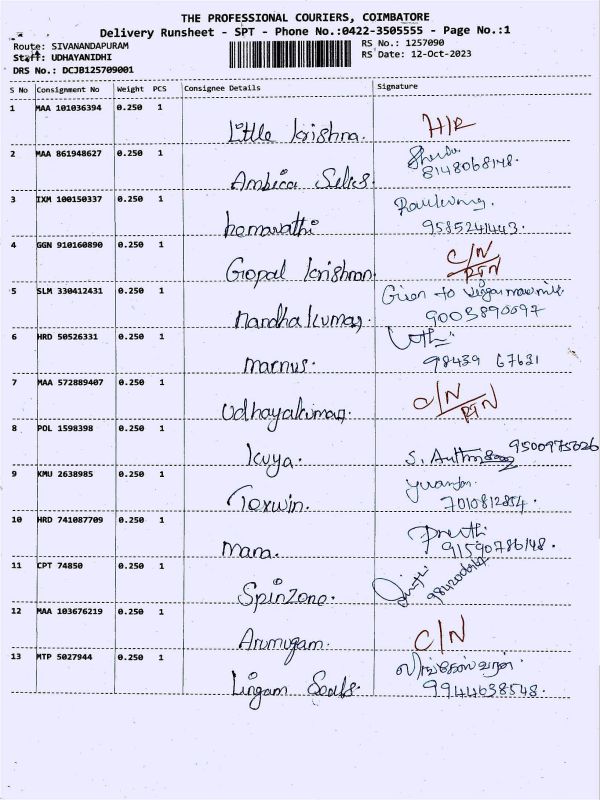 THE PROFESSIONAL COURIERS, COIMBATORE
Delivery Runsheet - SPT - Phone No.:0422-3505555 - Page No.:1
Route: SIVANANDAPURAM RS No.: 1257090
Staff: UDHAYANIDHI RS Date: 12-Oct-2023
DRS No.: DCJB125709001
S No Consignment No Weight PCS Consignee Details Signature
1 MAA 101036394 0.250 1
Little Krishna. H/R
2 MAA 861948627 0.250 1
Ambica Selks. 8148068148.
3 IXM 100150337 0.250 1
hemavathi 9585241443.
4 GGN 910160890 0.250 1 C/N
Gopal Krishnan. RTN
5 SLM 330412431 0.250 1 Given to
Nandha Kumar, 9003890097
6 HRD 50526331 0.250 1
Marnus. 98439 67631
7 MAA 572889407 0.250 1 C/N
Udhayakumar, RTN
8 POL 1598398 0.250 1 9500975626
Kuya. S.
9 KMU 2638985 0.250 1
Texwin. 7010812854.
10 HRD 741087709 0.250 1 Preethi
Mana. 91590786148.
11 CPT 74850 0.250 1
Spinzone.
12 MAA 103676219 0.250 1
Arumugam. C/N
13 MTP 5027944 0.250 1
Lingam Seals. 9944638548.